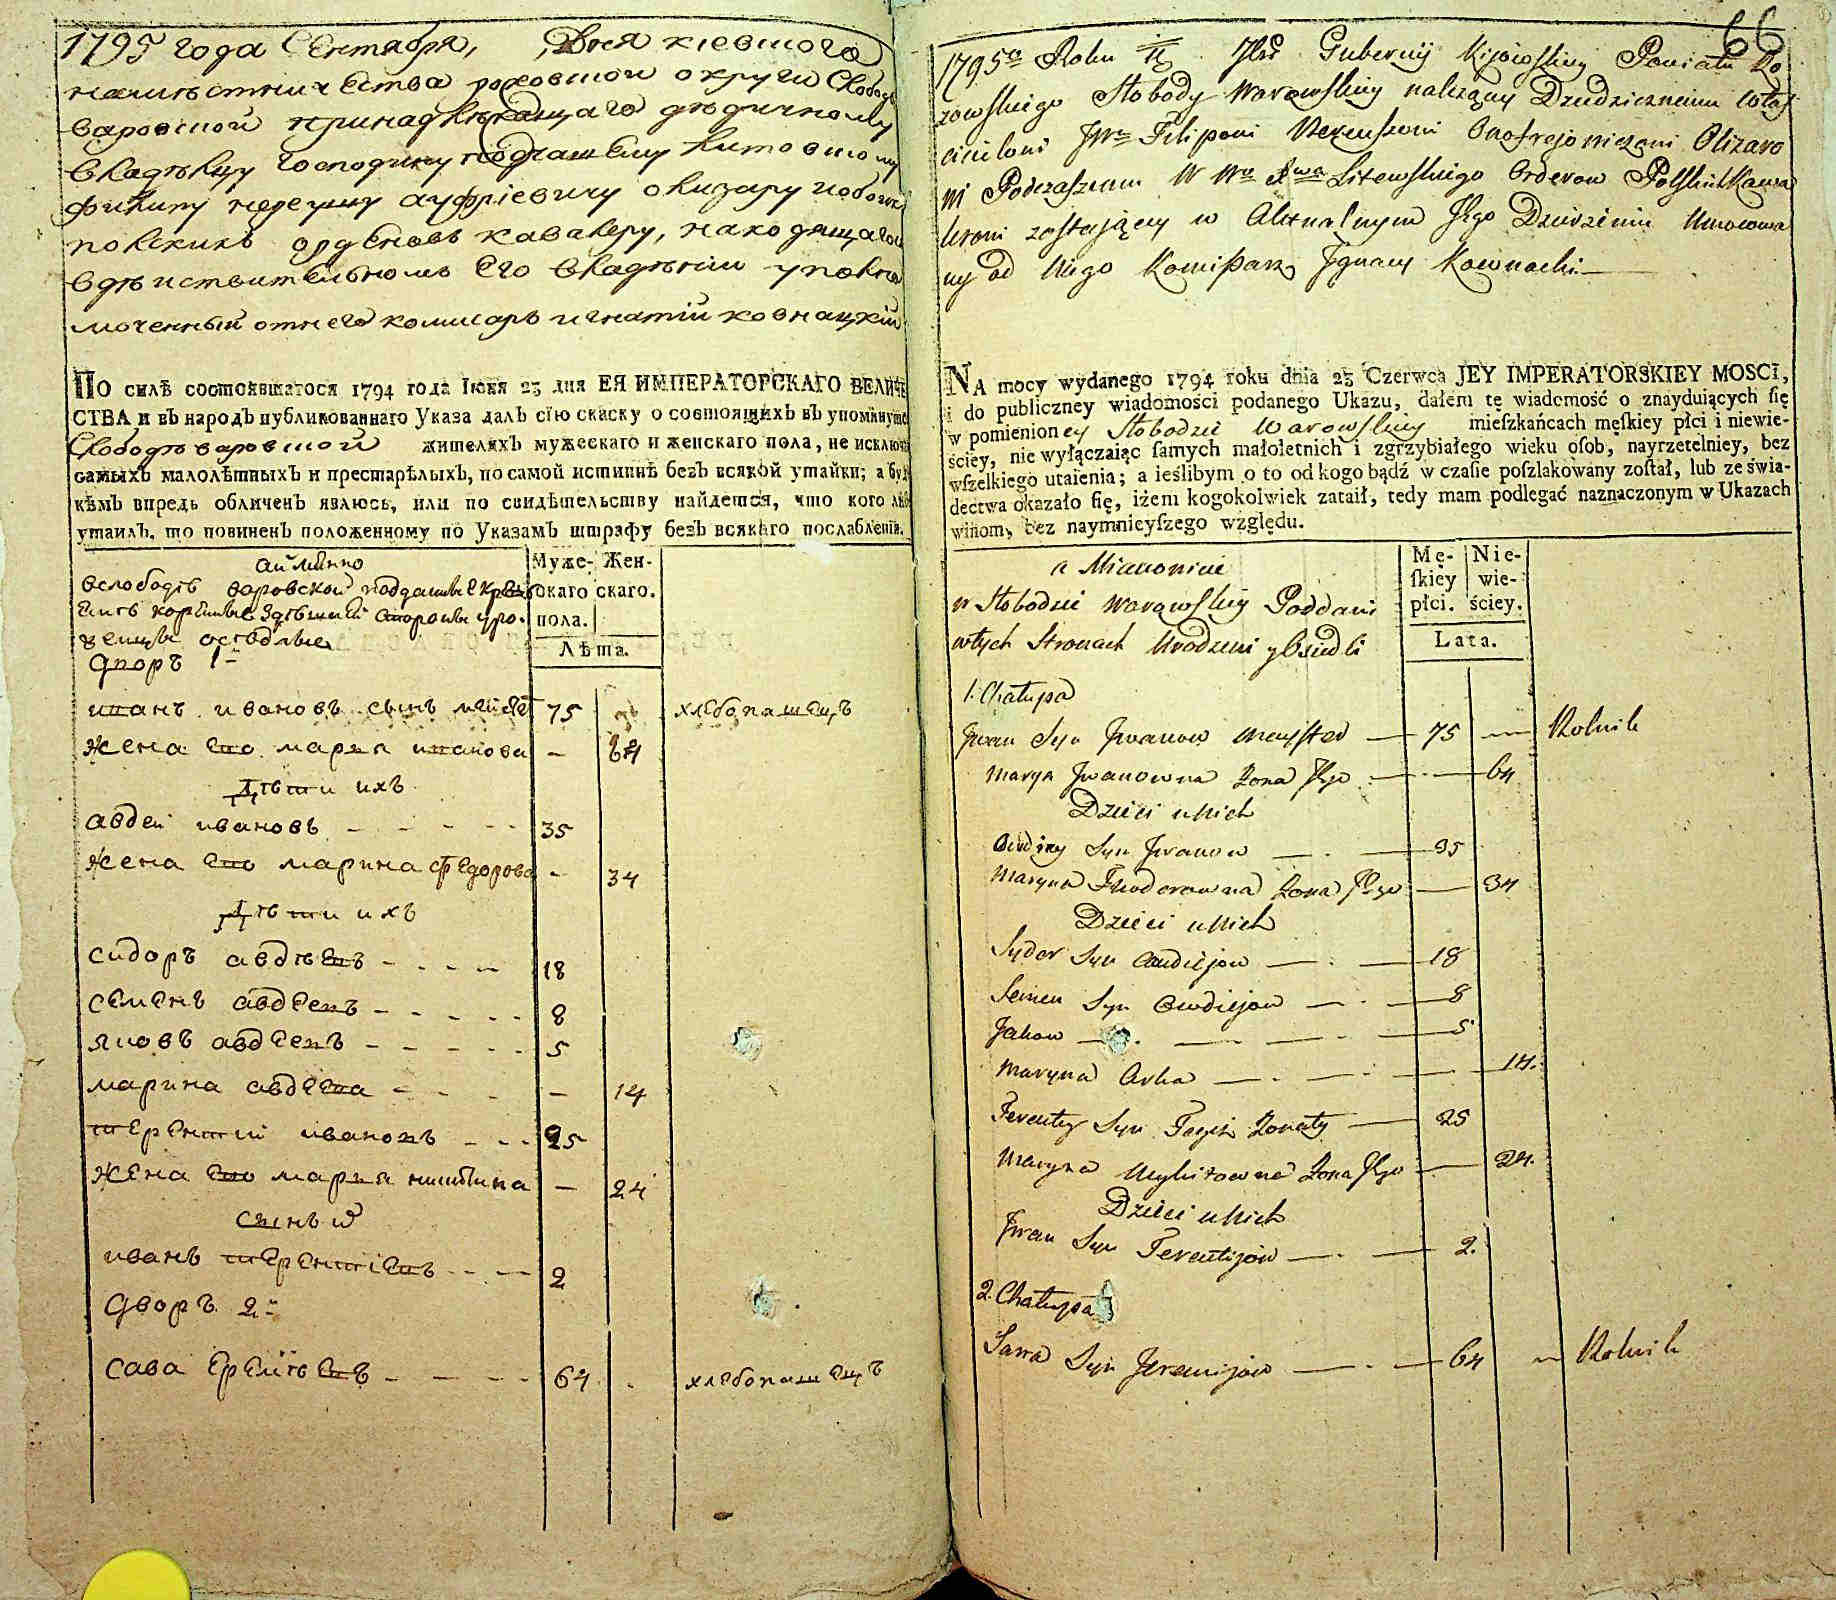 1795 года Сентября, Дня киевского
намѣстничества роховской округи Слобод
варовской принадлежащаго дѣдичному
владѣлцу Господину подчашему литовскому
Филипу нереушу ануфріевичу олизару и обоихъ
полскихъ орденовъ кавалеру, находящагося
вдѣиствительномъ Его владѣніи уполно
моченный отнего комисаръ игнатій ковнацкій
По силѣ состоявшагося 1794 года Іюня 23 дня ЕЯ ИМПЕРАТОРСКАГО ВЕЛИЧЕ
СТВА и въ народъ публикованнаго Указа далъ сїю скаску о состоящихъ въ упомянуто
Слободѣ варовской жителяхъ мужескаго и женскаго пола, не исключа
самыхъ малолѣтныхъ и престарѣлыхъ, по самой истиннѣ безъ всякой утайки; а буде
кѣмъ впредь обличенъ явлюсь, или по свидѣтельству найдется, что кого либо
утаилъ, то повиненъ положенному по Указамъ штрафу безъ всякаго послабленїя.
аимянно
вслободѣ варовской подданые
здѣшней стороны уро-
женцы осѣдлые
Муже-
скаго
пола.
Жен-
скаго.
Лѣта.
Дворъ 1й
иванъ ивановъ сынъ 75 хлебопашецъ
жена его марья иванова — 64
Дѣти ихъ
авдеи ивановъ 35
жена его марина федорова - 34
Дѣти ихъ
сидоръ авдѣевъ 18
семенъ авдеевъ 8
яковъ авдеевъ 5
марина авдеева — 14
терентий ивановъ 25
жена его марья никитина — 24
сынъ их
иванъ терентіевъ 2
Дворъ 2й
сава еремѣевъ 64 хлебопашецъ
66
1795o Roku Gubernij Kijowskiey Powiatu Ro
zowskiego Słobody Warowskiey należącey Dziedzicznemu Włas
cicielowi JWu Filipowi Nereuszowi Onofrejowiczowi Olizaro
wi Podczaszemu W Wo Xwa Litewskiego Orderow Polskich Kawa
lerowi zostającey w Aktualnym Jego Dzierżeniu Umocowa
ny od Niego Komissarz Jgnacy Kownacki —
NA mocy wydanego 1794 roku dnia 23 Czerwca JEY IMPERATORSKIEY MOSCI,
i do publiczney wiadomości podanego Ukazu, dałem tę wiadomość o znayduiących ſię
w pomienioney Słobodzie Warowskiey mieſzkańcach męſkiey płci i niewie-
ściey, nie wyłączaiąc ſamych małoletnich i zgrzybiałego wieku oſob, nayrzetelniey, bez
wſzelkiego utaienia; a ieślibym o to od kogo bądź w czaſie poſzlakowany zoſtał, lub ze świa-
dectwa okazało ſię, iżem kogokolwiek zataił, tedy mam podlegać naznaczonym w Ukazach
winom, bez naymnieyſzego względu.
a Mianowicie
w Słobodzie Warowskiey Poddani
wtych Stronach Urodzeni y Osiedli
Mę-
ſkiey
płci.
Nie-
wie-
ściey.
Lata.
1. Chałupa
Jwan Syn Jwanow — 75 — Rolnik
Marya Jwanowna Zona Jego — 64
Dzieci u Nich
Awdiey Syn Jwanow — 35
Maryna Theodorowna Zona Jego — 34
Dzieci u Nich
Sydor Syn Awdiejow — 18
Semen Syn Awdiejow — 8
Jakow — 5
Maryna Corka — 14.
Terenty Syn Tegoż Zonaty — 25
Maryna Mykitowna Zona Jego — 24.
Dzieci u Nich
Jwan Syn Terentijow — 2.
2. Chałupa
Sawa Syn Jeremijow — 64 — Rolnik